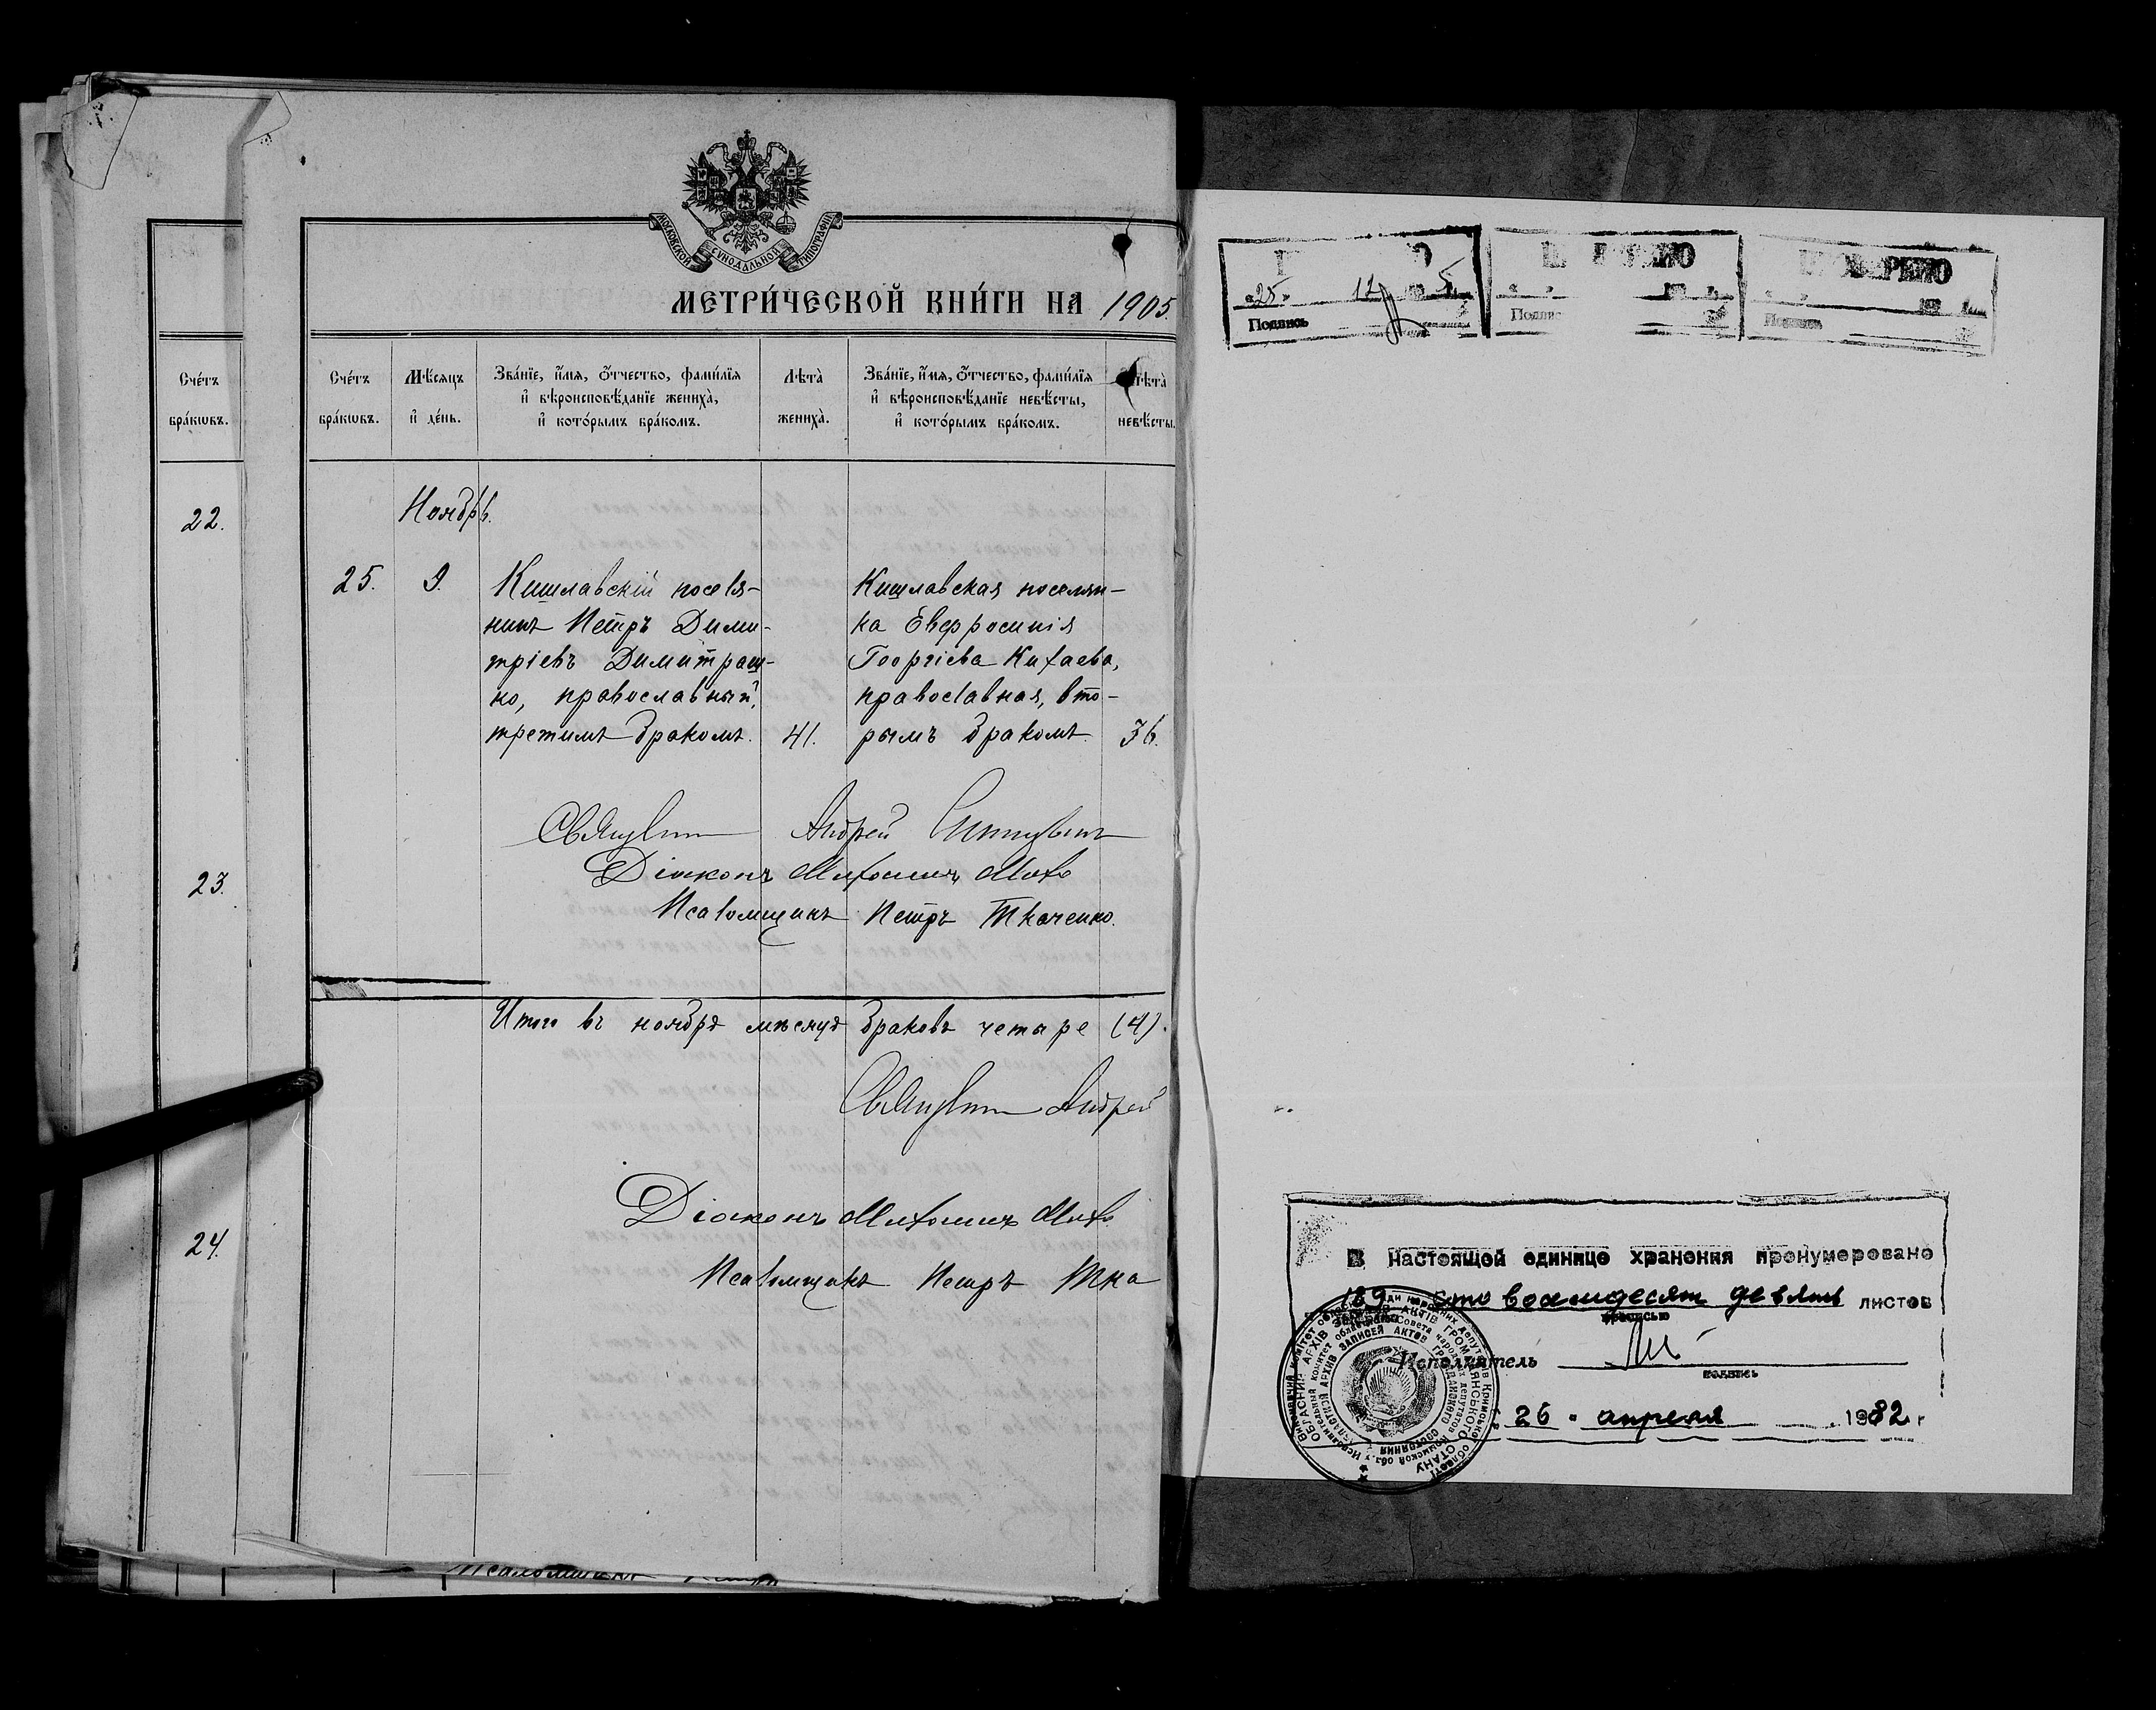 МОСКОВСКОЙ СѴНОДАЛЬНОЙ ТИПОГРАФІИ
МЕТРИ́ЧЕСКОЙ КНИ́ГИ НА 1905.
Сче́тъ бра́кωвъ.
Сче́тъ бра́кωвъ.
Мѣ́сяцъ и҆ де́нь.
Зва́нїе, и҆́мя, ѻ҆́тчество, фами́лїя и҆ вѣроисповѣ́данїе жениха̀, и҆ кото́рымъ бра́комъ.
Лѣта̀ жениха̀.
Зва́нїе, и҆́мя, ѻ҆́тчество, фами́лїя и҆ вѣроисповѣ́данїе невѣ́сты, и҆ кото́рымъ бра́комъ.
Лѣта̀ невѣ́сты.
22.
23.
24.
Ноябрь.
25. 9.
Кишлавскій поселя-
нинъ Петръ Дими-
тріевъ Димитраш-
ко, православный,
третимъ бракомъ. 41.
Кишлавская поселян-
ка Евфросинія
Георгіева Китаева,
православная, вто-
рымъ бракомъ. 36.
Священникъ Андрей
Діаконъ
Псаломщикъ Петръ Ткаченко.
Итого въ ноябрѣ мѣсяцѣ браковъ четыре (4).
Священникъ Андрей
Діаконъ
Псаломщикъ Петръ Тка
Псаломщикъ
25 12
Подпись
Подпис
Подпись
В настоящей единице хранения пронумеровано
189 Сто восемдесят девять листов
прописью
Исполнитель
подпись
26 апреля 1982 г